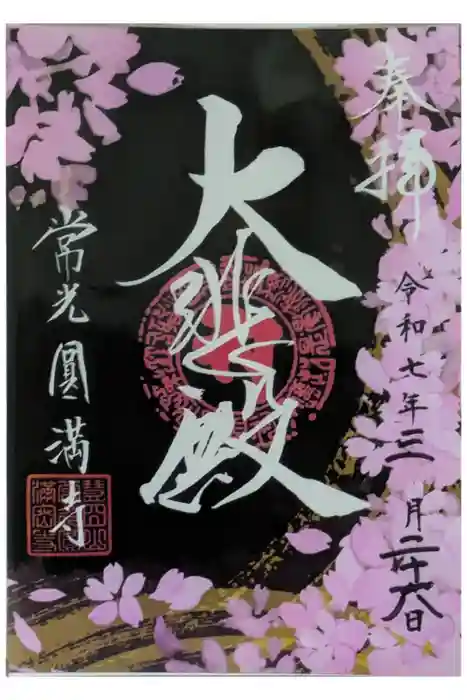 奉拝
令和七年三月二十八日
大悲殿
常光圓満寺